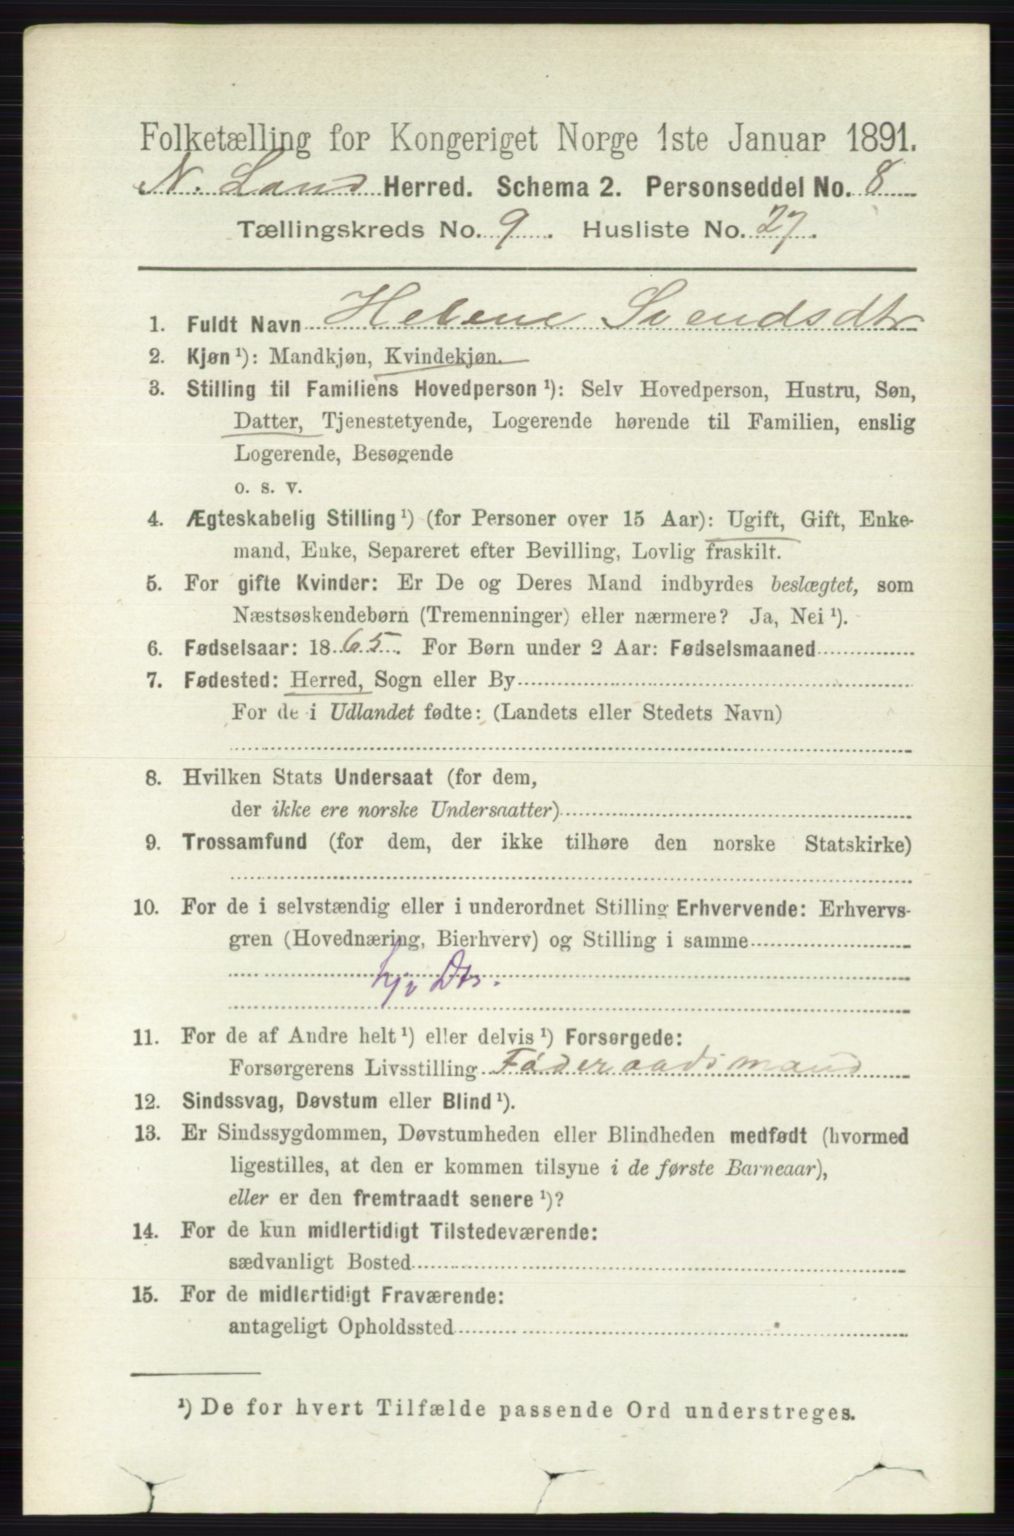 Folketælling for Kongeriget Norge 1ste Januar 1891.
N. Land Herred. Schema 2. Personseddel No. 8
Tællingskreds No. 9. Husliste No. 27.
1. Fuldt Navn Helene Svendsdtr
2. Kjøn ¹): Mandkjøn, Kvindekjøn.
3. Stilling til Familiens Hovedperson ¹): Selv Hovedperson, Hustru, Søn,
Datter, Tjenestetyende, Logerende hørende til Familien, enslig
Logerende, Besøgende
o. s. v.
4. Ægteskabelig Stilling ¹) (for Personer over 15 Aar): Ugift, Gift, Enke-
mand, Enke, Separeret efter Bevilling, Lovlig fraskilt.
5. For gifte Kvinder: Er De og Deres Mand indbyrdes beslægtet, som
Næstsøskendebørn (Tremenninger) eller nærmere? Ja, Nei ¹).
6. Fødselsaar: 1865. For Børn under 2 Aar: Fødselsmaaned
7. Fødested: Herred, Sogn eller By
For de i Udlandet fødte: (Landets eller Stedets Navn)
8. Hvilken Stats Undersaat (for dem,
der ikke ere norske Undersaatter)
9. Trossamfund (for dem, der ikke tilhøre den norske Statskirke)
10. For de i selvstændig eller i underordnet Stilling Erhvervende: Erhvervs-
gren (Hovednæring, Bierhverv) og Stilling i samme
hjv Dtr.
11. For de af Andre helt ¹) eller delvis ¹) Forsørgede:
Forsørgerens Livsstilling Føderaadsmand
12. Sindssvag, Døvstum eller Blind ¹).
13. Er Sindssygdommen, Døvstumheden eller Blindheden medfødt (hvormed
ligestilles, at den er kommen tilsyne i de første Barneaar),
eller er den fremtraadt senere ¹)?
14. For de kun midlertidigt Tilstedeværende:
sædvanligt Bosted
15. For de midlertidigt Fraværende:
antageligt Opholdssted
¹) De for hvert Tilfælde passende Ord understreges.